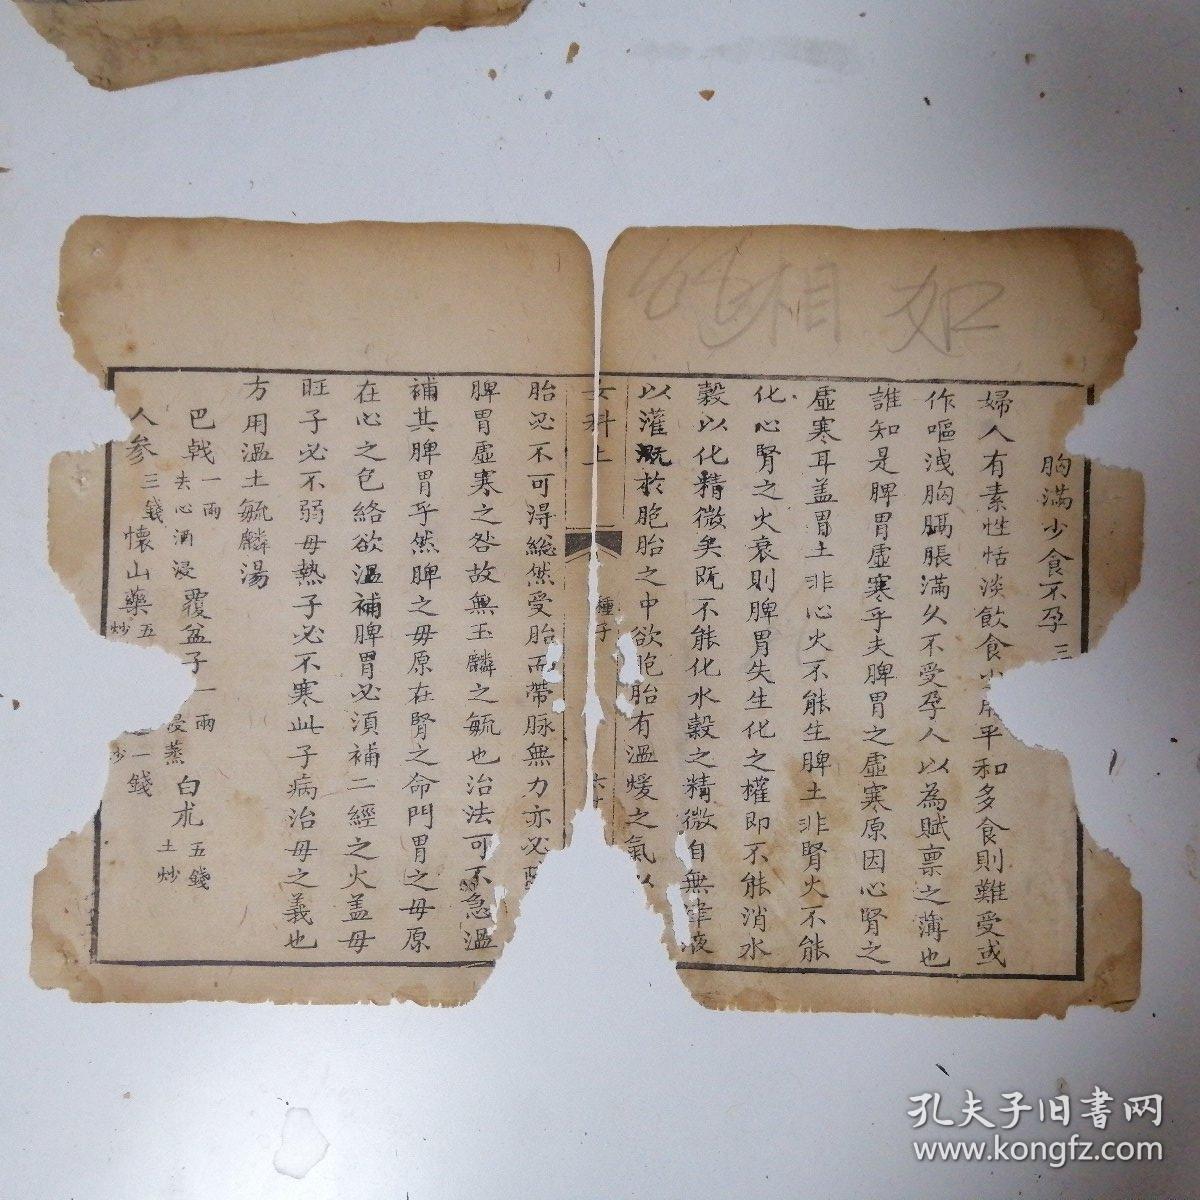 如相
胸满少食不孕 三
婦人有素性恬淡飲食少 平和多食則難受或
作嘔洩胸膈脹滿久不受孕人以為賦禀之薄也
誰知是脾胃虛寒乎夫脾胃之虛寒原因心腎之
虛寒耳盖胃土非心火不能生脾土非腎火不能
化心腎之火衰則脾胃失生化之權即不能消水
穀以化精微矣既不能化水穀之精微自無津液
以灌溉於胞胎之中欲胞胎有溫煖之氣以
女科上 種子
胎必不可得縂然受胎而帶脉無力亦必
脾胃虛寒之咎故無玉麟之毓也治法可不急溫
補其脾胃乎然脾之母原在腎之命門胃之母原
在心之包絡欲溫補脾胃必湏補二經之火盖母
旺子必不弱母熱子必不寒此子病治母之義也
方用溫土毓麟湯
巴戟一兩去心酒浸 覆盆子一兩 浸蒸 白朮五錢土炒
人參三錢 懷山藥五 炒 一錢 炒
孔夫子旧书网
www.kongfz.com